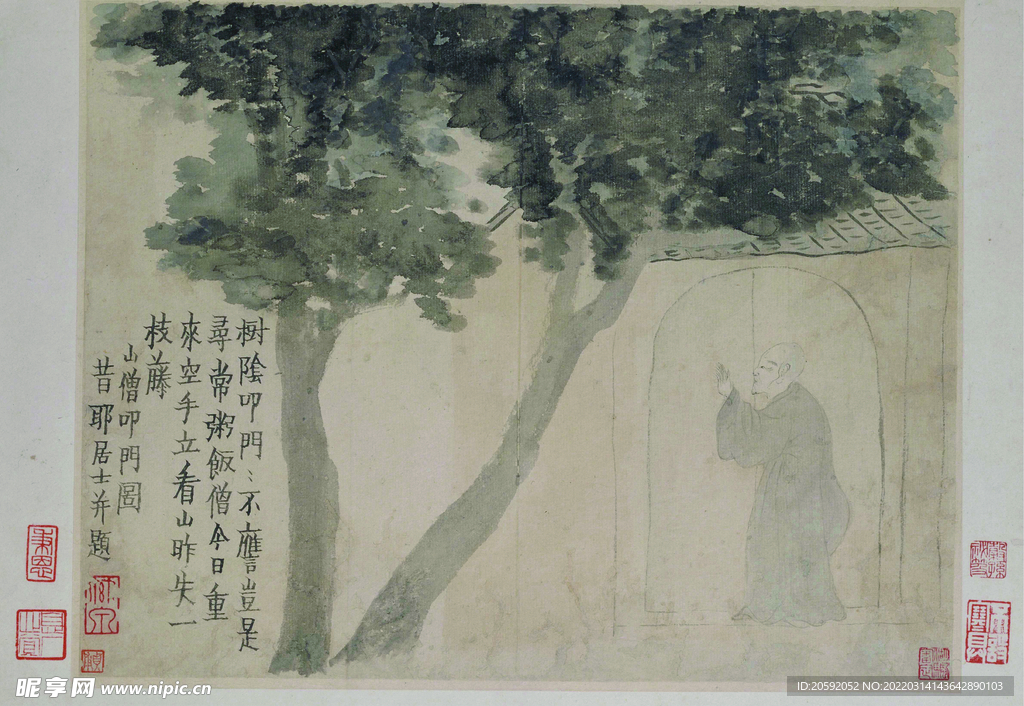 樹陰叩門〻不應豈是
尋常粥飯僧今日重
來空手立看山昨失一
枝藤
山僧叩門圖
昔耶居士并題
昵享网 www.nipic.cn
ID:20592052 NO:20220314143642890103